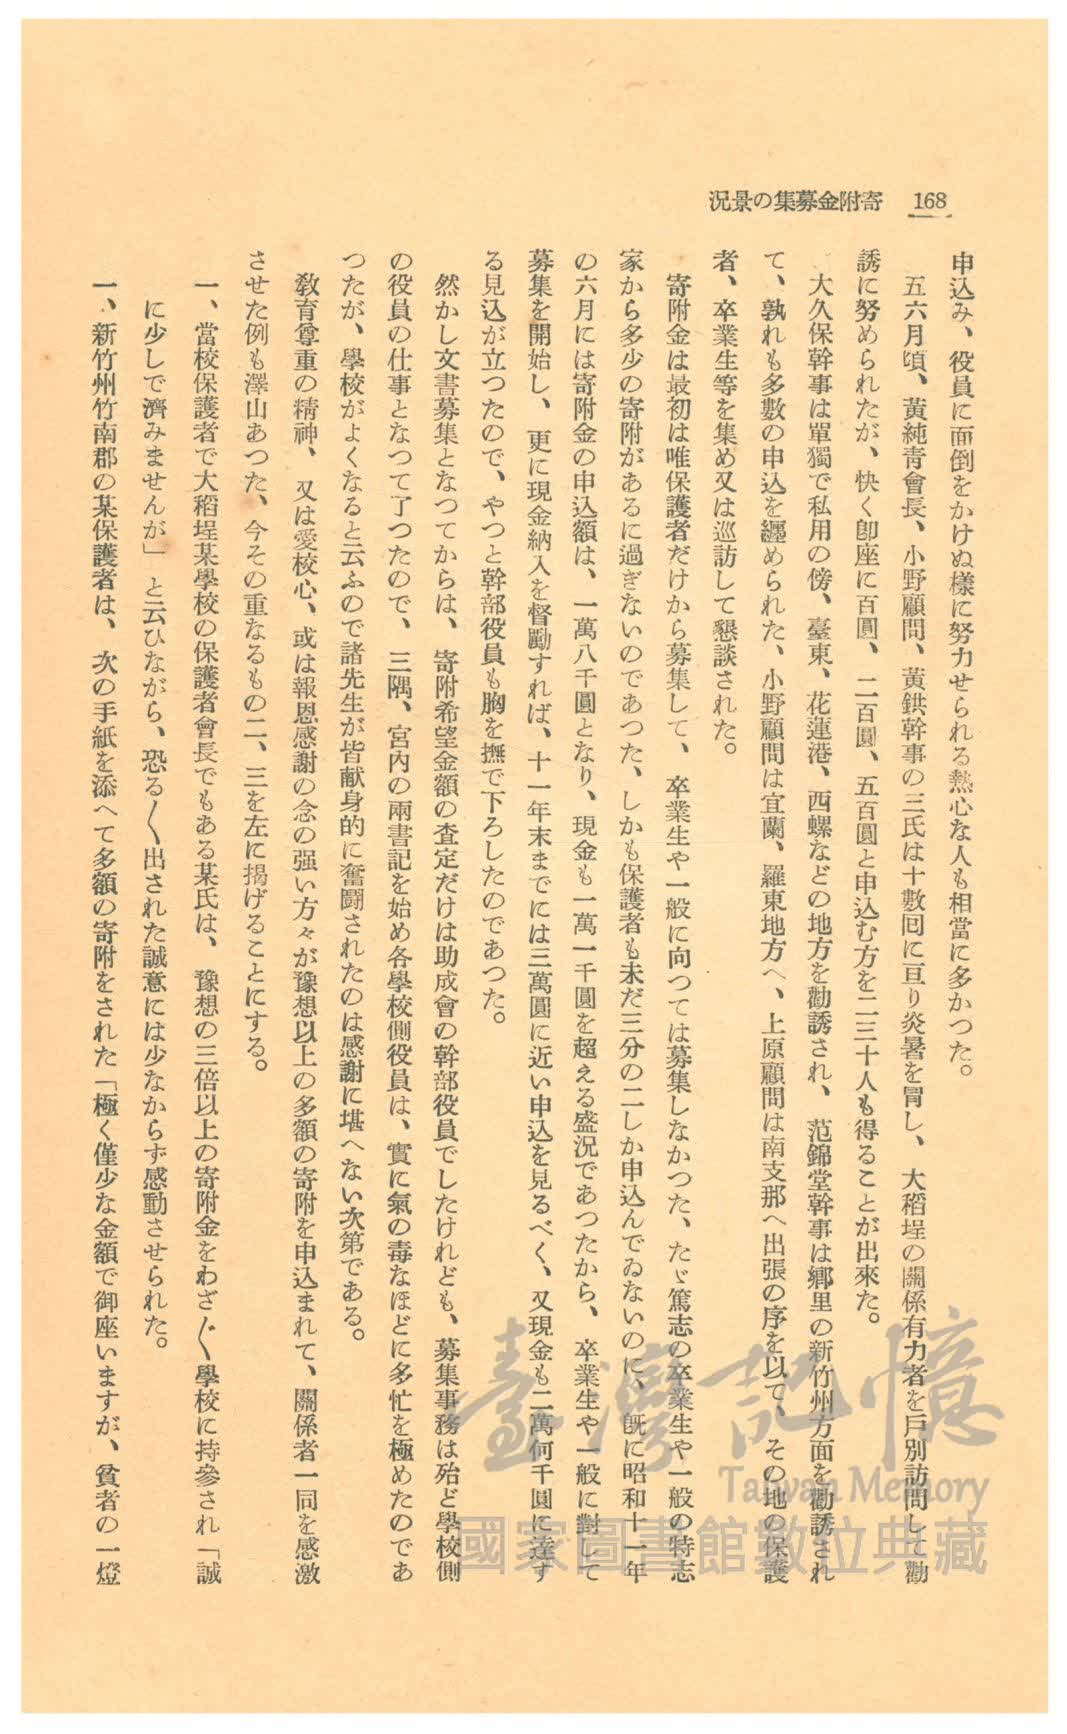 168
寄附金募集の景況
申込み、役員に面倒をかけぬ樣に努力せられる熱心な人も相當に多かつた。
五六月頃、黃純青會長、小野顧問、黃鉷幹事の三氏は十數囘に亘り炎暑を冐し、大稻埕の關係有力者を戶別訪問して勸
誘に努められたが、快く卽座に百圓、二百圓、五百圓と申込む方を二三十人も得ることが出來た。
大久保幹事は單獨で私用の傍、臺東、花蓮港、西螺などの地方を勸誘され、范錦堂幹事は鄕里の新竹州方面を勸誘され
て、孰れも多數の申込を纒められた、小野顧問は宜蘭、羅東地方へ、上原顧問は南支那へ出張の序を以て、その地の保護
者、卒業生等を集め又は巡訪して懇談された。
寄附金は最初は唯保護者だけから募集して、卒業生や一般に向つては募集しなかつた、たゞ篤志の卒業生や一般の特志
家から多少の寄附があるに過ぎないのであつた、しかも保護者も未だ三分の二しか申込んでゐないのに、旣に昭和十一年
の六月には寄附金の申込額は、一萬八千圓となり、現金も一萬一千圓を超える盛況であつたから、卒業生や一般に對して
募集を開始し、更に現金納入を督勵すれば、十一年末までには三萬圓に近い申込を見るべく、又現金も二萬何千圓に達す
る見込が立つたので、やつと幹部役員も胸を撫で下ろしたのであつた。
然かし文書募集となつてからは、寄附希望金額の査定だけは助成會の幹部役員でしたけれども、募集事務は殆ど學校側
の役員の仕事となつて了つたので、三隅、宮內の兩書記を始め各學校側役員は、實に氣の毒なほどに多忙を極めたのであ
つたが、學校がよくなると云ふので諸先生が皆献身的に奮鬪されたのは感謝に堪へない次第である。
敎育尊重の精神、又は愛校心、或は報恩感謝の念の强い方々が豫想以上の多額の寄附を申込まれて、關係者一同を感激
させた例も澤山あつた、今その重なるもの二、三を左に揭げることにする。
一、當校保護者で大稻埕某學校の保護者會長でもある某氏は、豫想の三倍以上の寄附金をわざ〲學校に持參され「誠
に少しで濟みませんが」と云ひながら、恐る〱出された誠意には少なからず感動させられた。
一、新竹州竹南郡の某保護者は、次の手紙を添へて多額の寄附をされた「極く僅少な金額で御座いますが、貧者の一燈
臺灣記憶
Taiwan Memory
國家圖書館數位典藏